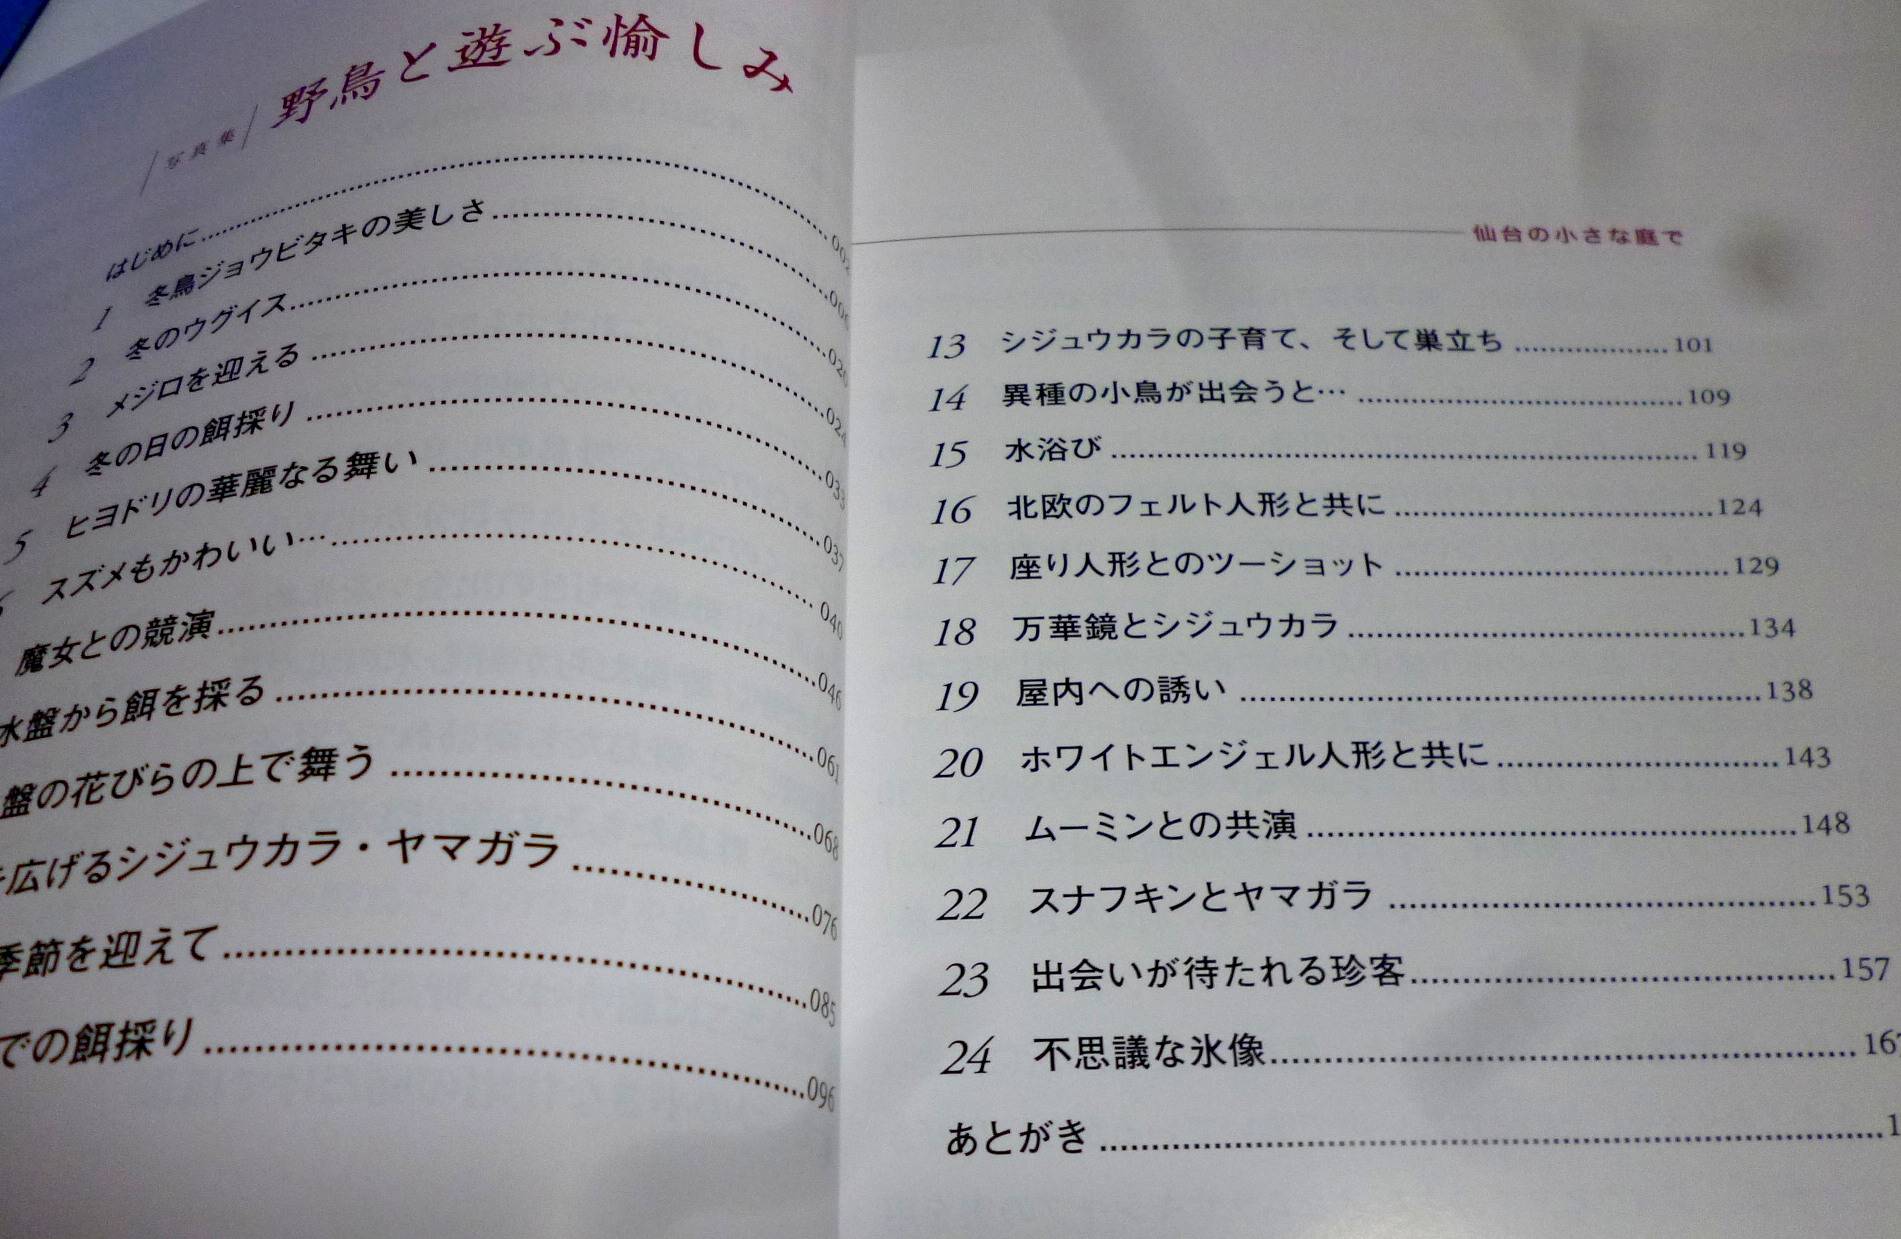 写真集 野鳥と遊ぶ愉しみ
はじめに 002
1 冬鳥ジョウビタキの美しさ
2 冬のウグイス 020
3 メジロを迎える 024
4 冬の日の餌採り 033
5 ヒヨドリの華麗なる舞い 037
スズメもかわいい… 040
魔女との競演 046
水盤から餌を採る 061
盤の花びらの上で舞う 068
広げるシジュウカラ・ヤマガラ 076
季節を迎えて 085
での餌採り 096
仙台の小さな庭で
13 シジュウカラの子育て、そして巣立ち 101
14 異種の小鳥が出会うと… 109
15 水浴び 119
16 北欧のフェルト人形と共に 124
17 座り人形とのツーショット 129
18 万華鏡とシジュウカラ 134
19 屋内への誘い 138
20 ホワイトエンジェル人形と共に 143
21 ムーミンとの共演 148
22 スナフキンとヤマガラ 153
23 出会いが待たれる珍客 157
24 不思議な氷像 167
あとがき